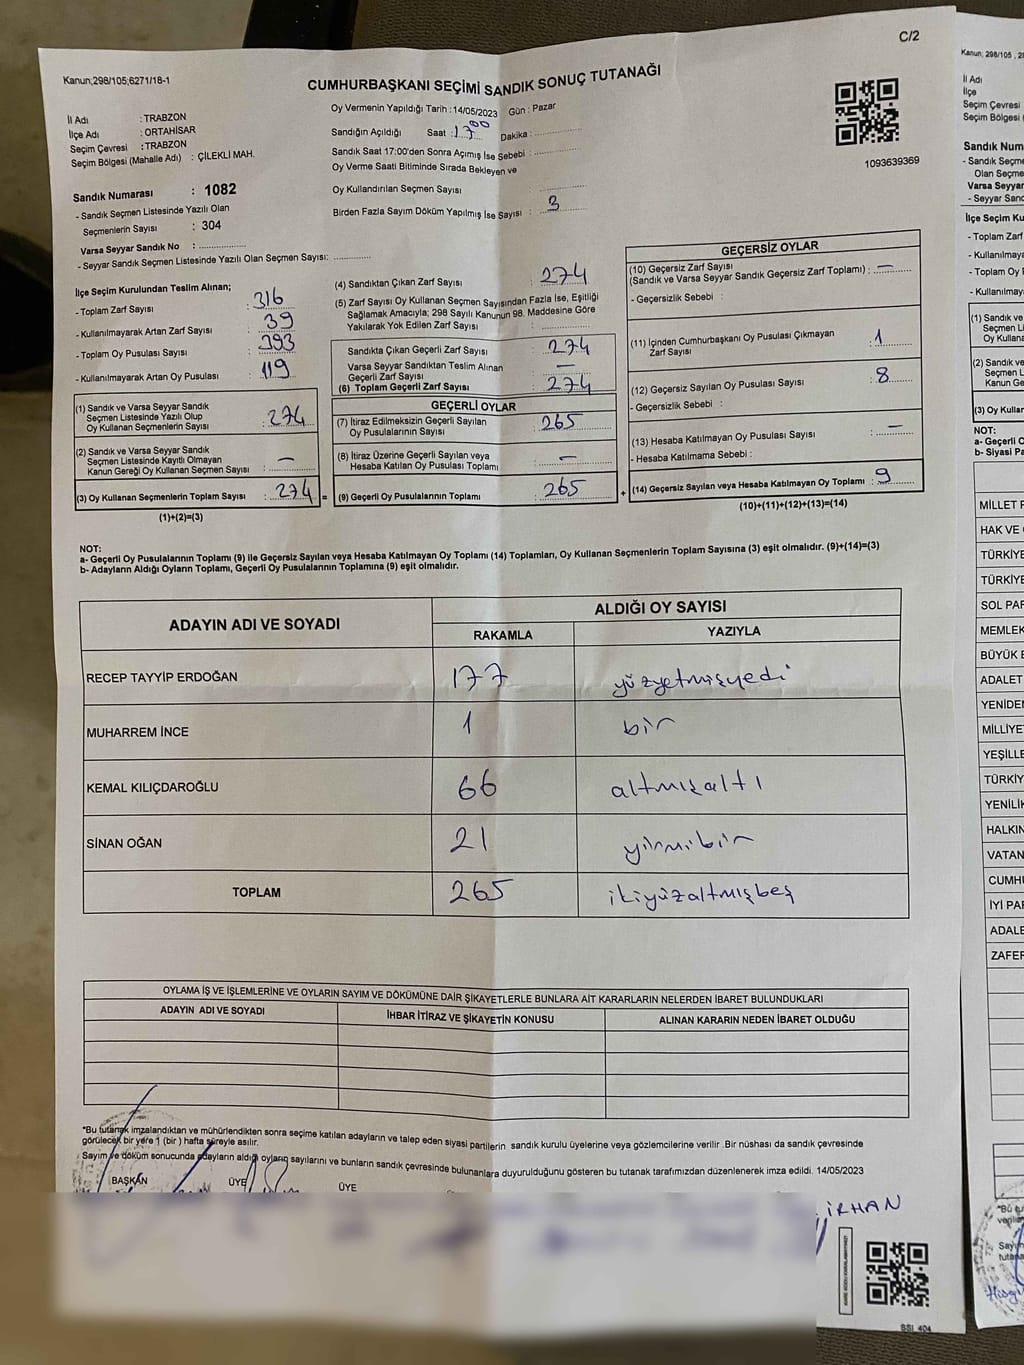 C/2
Kanun;298/105,6271/18-1
CUMHURBAŞKANI SEÇİMİ SANDIK SONUÇ TUTANAĞI
İl Adı : TRABZON
İlçe Adı : ORTAHİSAR
Seçim Çevresi : TRABZON
Seçim Bölgesi (Mahalle Adı) : ÇİLEKLİ MAH.
Oy Vermenin Yapıldığı Tarih : 14/05/2023 Gün : Pazar
Sandığın Açıldığı Saat : 17 00 Dakika :
Sandık Saat 17:00'den Sonra Açımış İse Sebebi :
Oy Verme Saati Bitiminde Sırada Bekleyen ve
Oy Kullandırılan Seçmen Sayısı :
Birden Fazla Sayım Döküm Yapılmış İse Sayısı : 3
1093639369
Sandık Numarası : 1082
- Sandık Seçmen Listesinde Yazılı Olan
Seçmenlerin Sayısı : 304
Varsa Seyyar Sandık No :
- Seyyar Sandık Seçmen Listesinde Yazılı Olan Seçmen Sayısı:
İlçe Seçim Kurulundan Teslim Alınan;
- Toplam Zarf Sayısı : 316
- Kullanılmayarak Artan Zarf Sayısı : 39
- Toplam Oy Pusulası Sayısı : 393
- Kullanılmayarak Artan Oy Pusulası : 119
(1) Sandık ve Varsa Seyyar Sandık
Seçmen Listesinde Yazılı Olup
Oy Kullanan Seçmenlerin Sayısı : 274
(2) Sandık ve Varsa Seyyar Sandık
Seçmen Listesinde Kayıtlı Olmayan
Kanun Gereği Oy Kullanan Seçmen Sayısı : -
(3) Oy Kullanan Seçmenlerin Toplam Sayısı : 274 =
(1)+(2)=(3)
(4) Sandıktan Çıkan Zarf Sayısı : 274
(5) Zarf Sayısı Oy Kullanan Seçmen Sayısından Fazla İse, Eşitliği
Sağlamak Amacıyla; 298 Sayılı Kanunun 98. Maddesine Göre
Yakılarak Yok Edilen Zarf Sayısı :
Sandıkta Çıkan Geçerli Zarf Sayısı : 274
Varsa Seyyar Sandıktan Teslim Alınan
Geçerli Zarf Sayısı : -
(6) Toplam Geçerli Zarf Sayısı : 274
GEÇERLİ OYLAR
(7) İtiraz Edilmeksizin Geçerli Sayılan
Oy Pusulalarının Sayısı : 265
(8) İtiraz Üzerine Geçerli Sayılan veya
Hesaba Katılan Oy Pusulası Toplamı : -
(9) Geçerli Oy Pusulalarının Toplamı : 265 +
GEÇERSİZ OYLAR
(10) Geçersiz Zarf Sayısı
(Sandık ve Varsa Seyyar Sandık Geçersiz Zarf Toplamı) : -
- Geçersizlik Sebebi :
(11) İçinden Cumhurbaşkanı Oy Pusulası Çıkmayan
Zarf Sayısı : 1
(12) Geçersiz Sayılan Oy Pusulası Sayısı : 8
- Geçersizlik Sebebi :
(13) Hesaba Katılmayan Oy Pusulası Sayısı : -
- Hesaba Katılmama Sebebi :
(14) Geçersiz Sayılan veya Hesaba Katılmayan Oy Toplamı : 9
(10)+(11)+(12)+(13)=(14)
NOT:
a- Geçerli Oy Pusulalarının Toplamı (9) ile Geçersiz Sayılan veya Hesaba Katılmayan Oy Toplamı (14) Toplamları, Oy Kullanan Seçmenlerin Toplam Sayısına (3) eşit olmalıdır. (9)+(14)=(3)
b- Adayların Aldığı Oyların Toplamı, Geçerli Oy Pusulalarının Toplamına (9) eşit olmalıdır.
ADAYIN ADI VE SOYADI ALDIĞI OY SAYISI
RAKAMLA YAZIYLA
RECEP TAYYİP ERDOĞAN 177 yüzyetmişyedi
MUHARREM İNCE 1 bir
KEMAL KILIÇDAROĞLU 66 altmışaltı
SİNAN OĞAN 21 yirmibir
TOPLAM 265 ikiyüzaltmışbeş
OYLAMA İŞ VE İŞLEMLERİNE VE OYLARIN SAYIM VE DÖKÜMÜNE DAİR ŞİKAYETLERLE BUNLARA AİT KARARLARIN NELERDEN İBARET BULUNDUKLARI
ADAYIN ADI VE SOYADI İHBAR İTİRAZ VE ŞİKAYETİN KONUSU ALINAN KARARIN NEDEN İBARET OLDUĞU
*Bu tutanak imzalandıktan ve mühürlendikten sonra seçime katılan adayların ve talep eden siyasi partilerin sandık kurulu üyelerine veya gözlemcilerine verilir .Bir nüshası da sandık çevresinde
görülecek bir yere 1 (bir ) hafta süreyle asılır.
Sayım ve döküm sonucunda adayların aldığı oyların sayılarını ve bunların sandık çevresinde bulunanlara duyurulduğunu gösteren bu tutanak tarafımızdan düzenlenerek imza edildi. 14/05/2023
BAŞKAN ÜYE ÜYE
İRHAN
SSI 404
Kanun; 298/105 , 2
İl Adı
İlçe
Seçim Çevresi
Seçim Bölgesi (
Sandık Num
- Sandık Seçme
Olan Seçme
Varsa Seyya
- Seyyar Sand
İlçe Seçim Ku
- Toplam Zarf
- Kullanılmaya
- Toplam Oy
- Kullanılmaya
(1) Sandık ve
Seçmen Li
Oy Kullana
(2) Sandık ve
Seçmen L
Kanun Ge
(3) Oy Kullar
NOT:
a- Geçerli O
b- Siyasi Pa
MİLLET P
HAK VE
TÜRKİYE
TÜRKİYE
SOL PAR
MEMLEK
BÜYÜK E
ADALET
YENİDEN
MİLLİYE
YEŞİLLE
TÜRKİY
YENİLİK
HALKIN
VATAN
CUMHU
İYİ PAR
ADALE
ZAFER